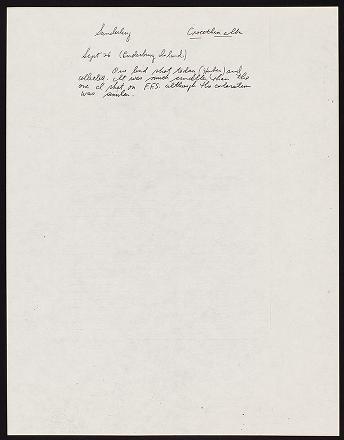 Sanderling Crocethia alba
Sept 26 (Enderbury Island)
One bird shot today (Huber) and
collected. It was much smaller than the
one I shot on F.F.S. although the coloration
was similar.